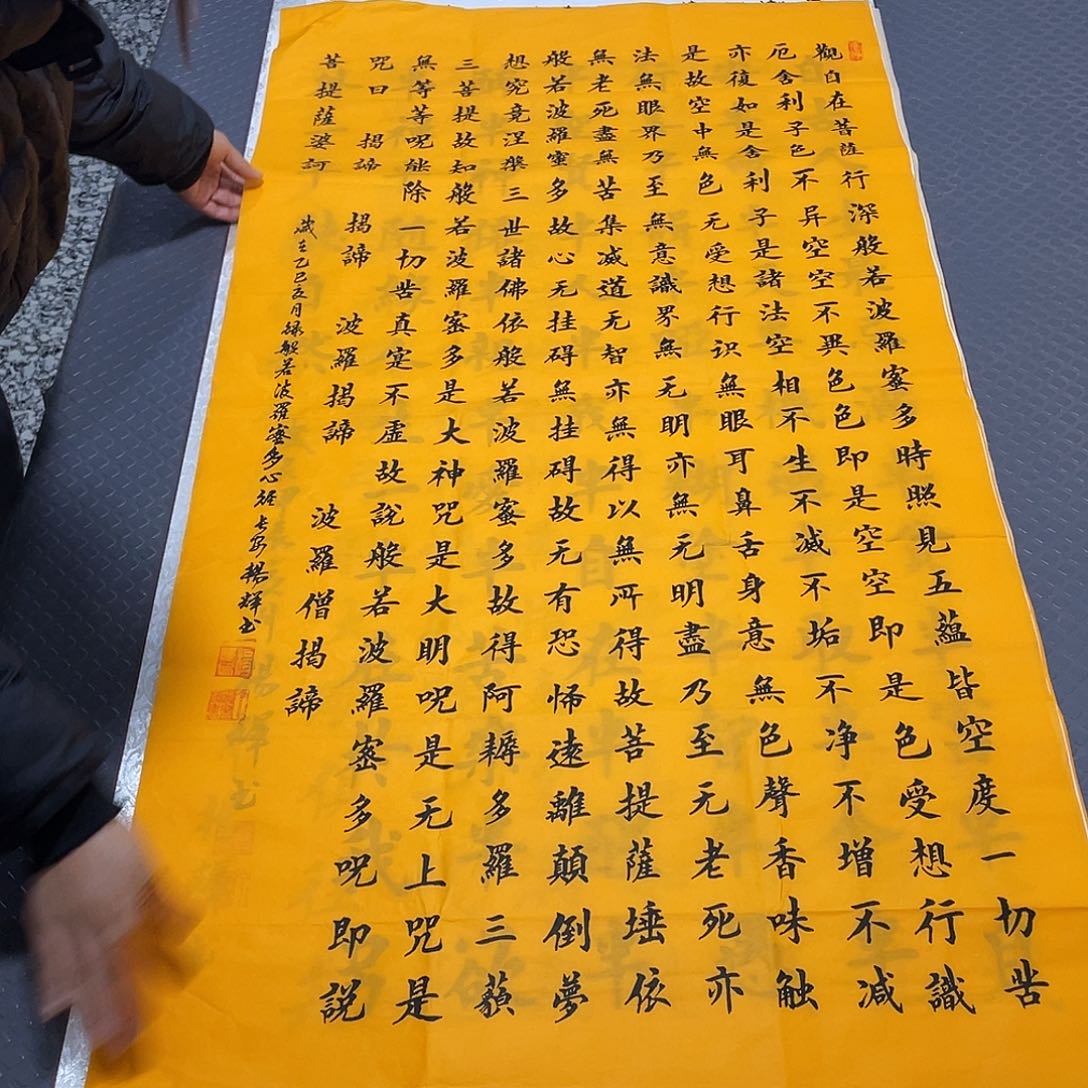 觀自在菩薩行深般若波羅蜜多時照見五蘊皆空度一切苦
厄舍利子色不异空空不異色色即是空空即是色受想行識
亦復如是舍利子是諸法空相不生不滅不垢不净不增不减
是故空中無色无受想行识無眼耳鼻舌身意無色聲香味触
法無眼界乃至無意識界無无明亦無无明盡乃至无老死亦
無老死盡無苦集滅道无智亦無得以無所得故菩提薩埵依
般若波羅蜜多故心无挂碍無挂碍故无有恐怖遠離顛倒夢
想究竟涅槃三世諸佛依般若波羅蜜多故得阿耨多羅三藐
三菩提故知般若波羅蜜多是大神咒是大明呪是无上咒是
無等等呪能除一切苦真实不虛故說般若波羅蜜多呪即説
咒曰 揭諦 揭諦 波羅揭諦 波羅僧揭諦
菩提薩婆訶
歲在乙巳亥月録般若波羅蜜多心經 长安楊輝书